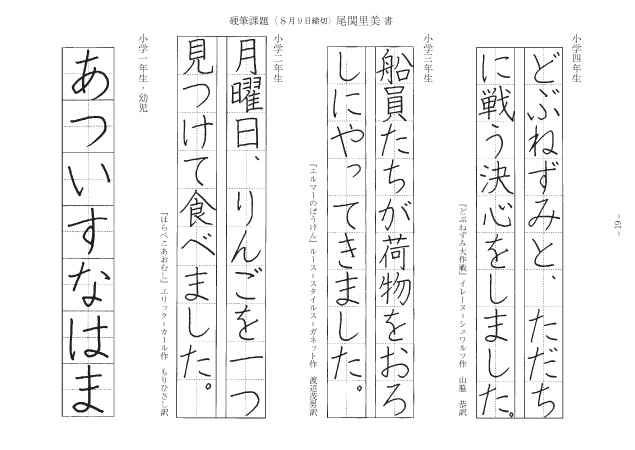 硬筆課題（８月９日締切）尾関里美 書
小学四年生
どぶねずみと、ただち
に戦う決心をしました。
『どぶねずみ大作戦』イレーヌ＝シュワルツ作　山脇　恭訳
小学三年生
船員たちが荷物をおろ
しにやってきました。
『エルマーのぼうけん』ルース＝スタイルス＝ガネット作　渡辺茂男訳
小学二年生
月曜日、りんごを一つ
見つけて食べました。
『はらぺこあおむし』エリック＝カール作　もりひさし訳
小学一年生・幼児
あついすなはま
- 19 -